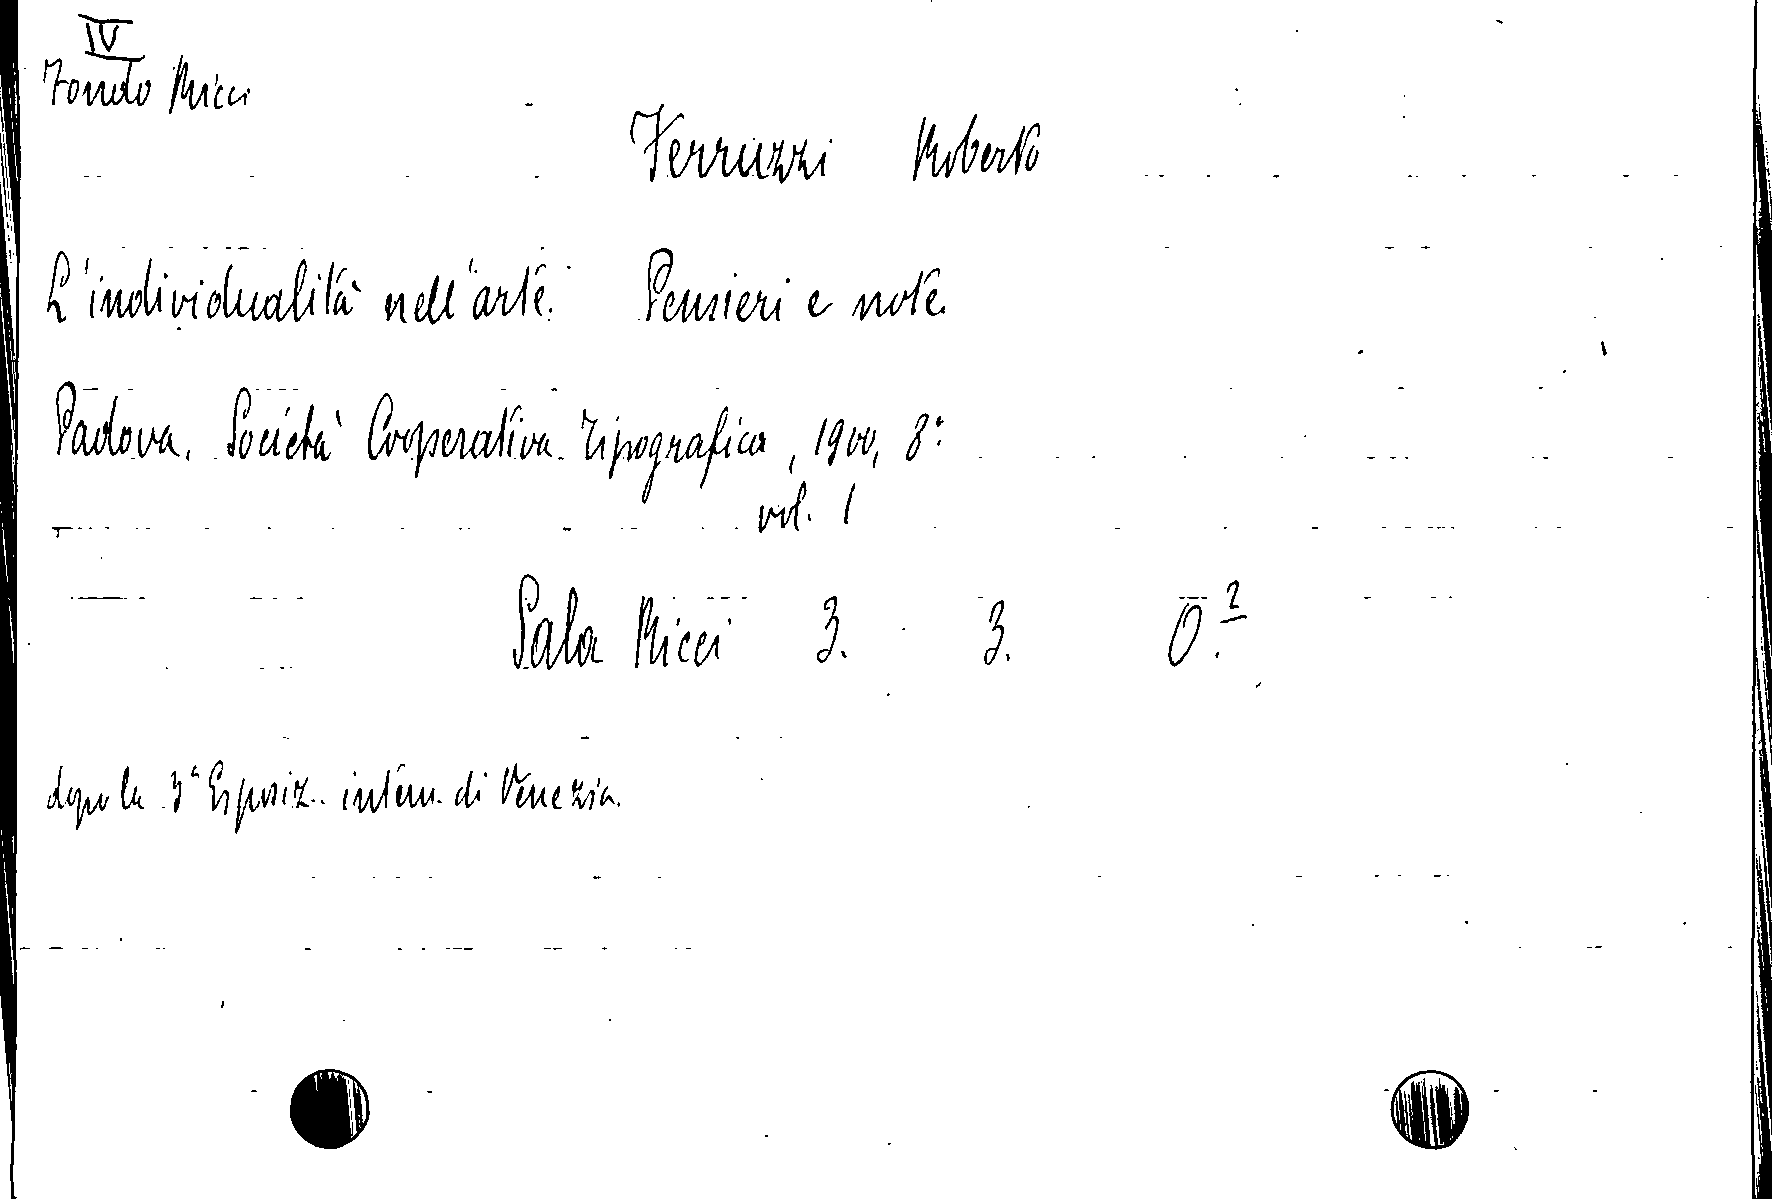 IV
Fondo Ricci
Ferruzzi Roberto
L'individualità nell'arte. Pensieri e note.
Padova. Società Cooperativa Tipografica, 1900, 8°
vol. 1
Sala Ricci 3. 3. O.2
dopo la 3ª Esposiz. intern. di Venezia.